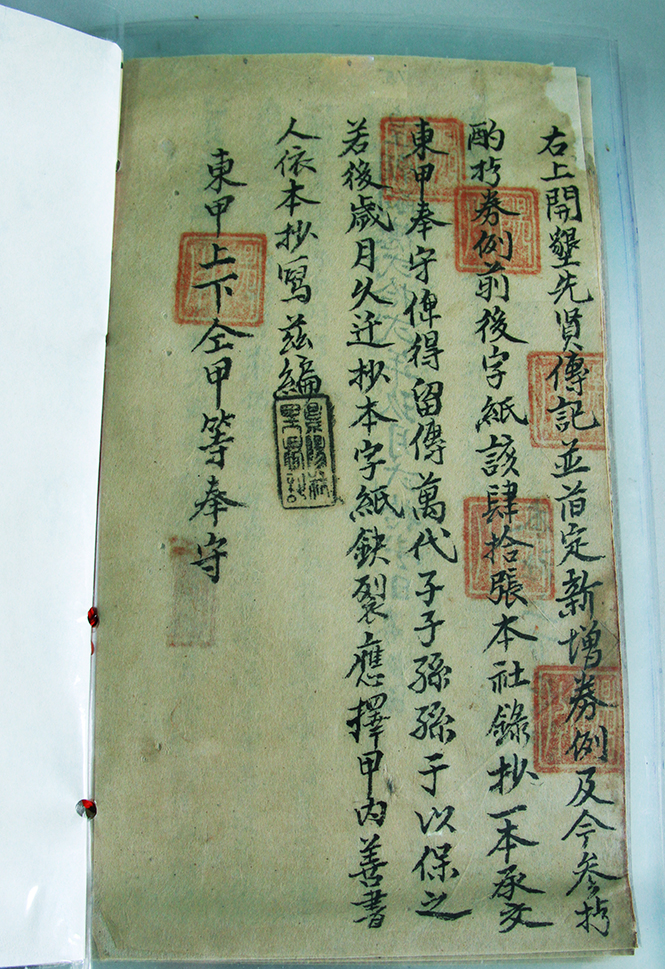 右上開墾先賢傳記並旹定新增券例及今參抄
酌抄券例前後字紙該肆拾張本社錄抄一本承交
東甲奉守俾得留傳萬代子子孫孫于以保之
若後歲月久迁抄本字紙缺裂應擇甲內善書
人依本抄寫茲編
東甲上下仝甲等奉守